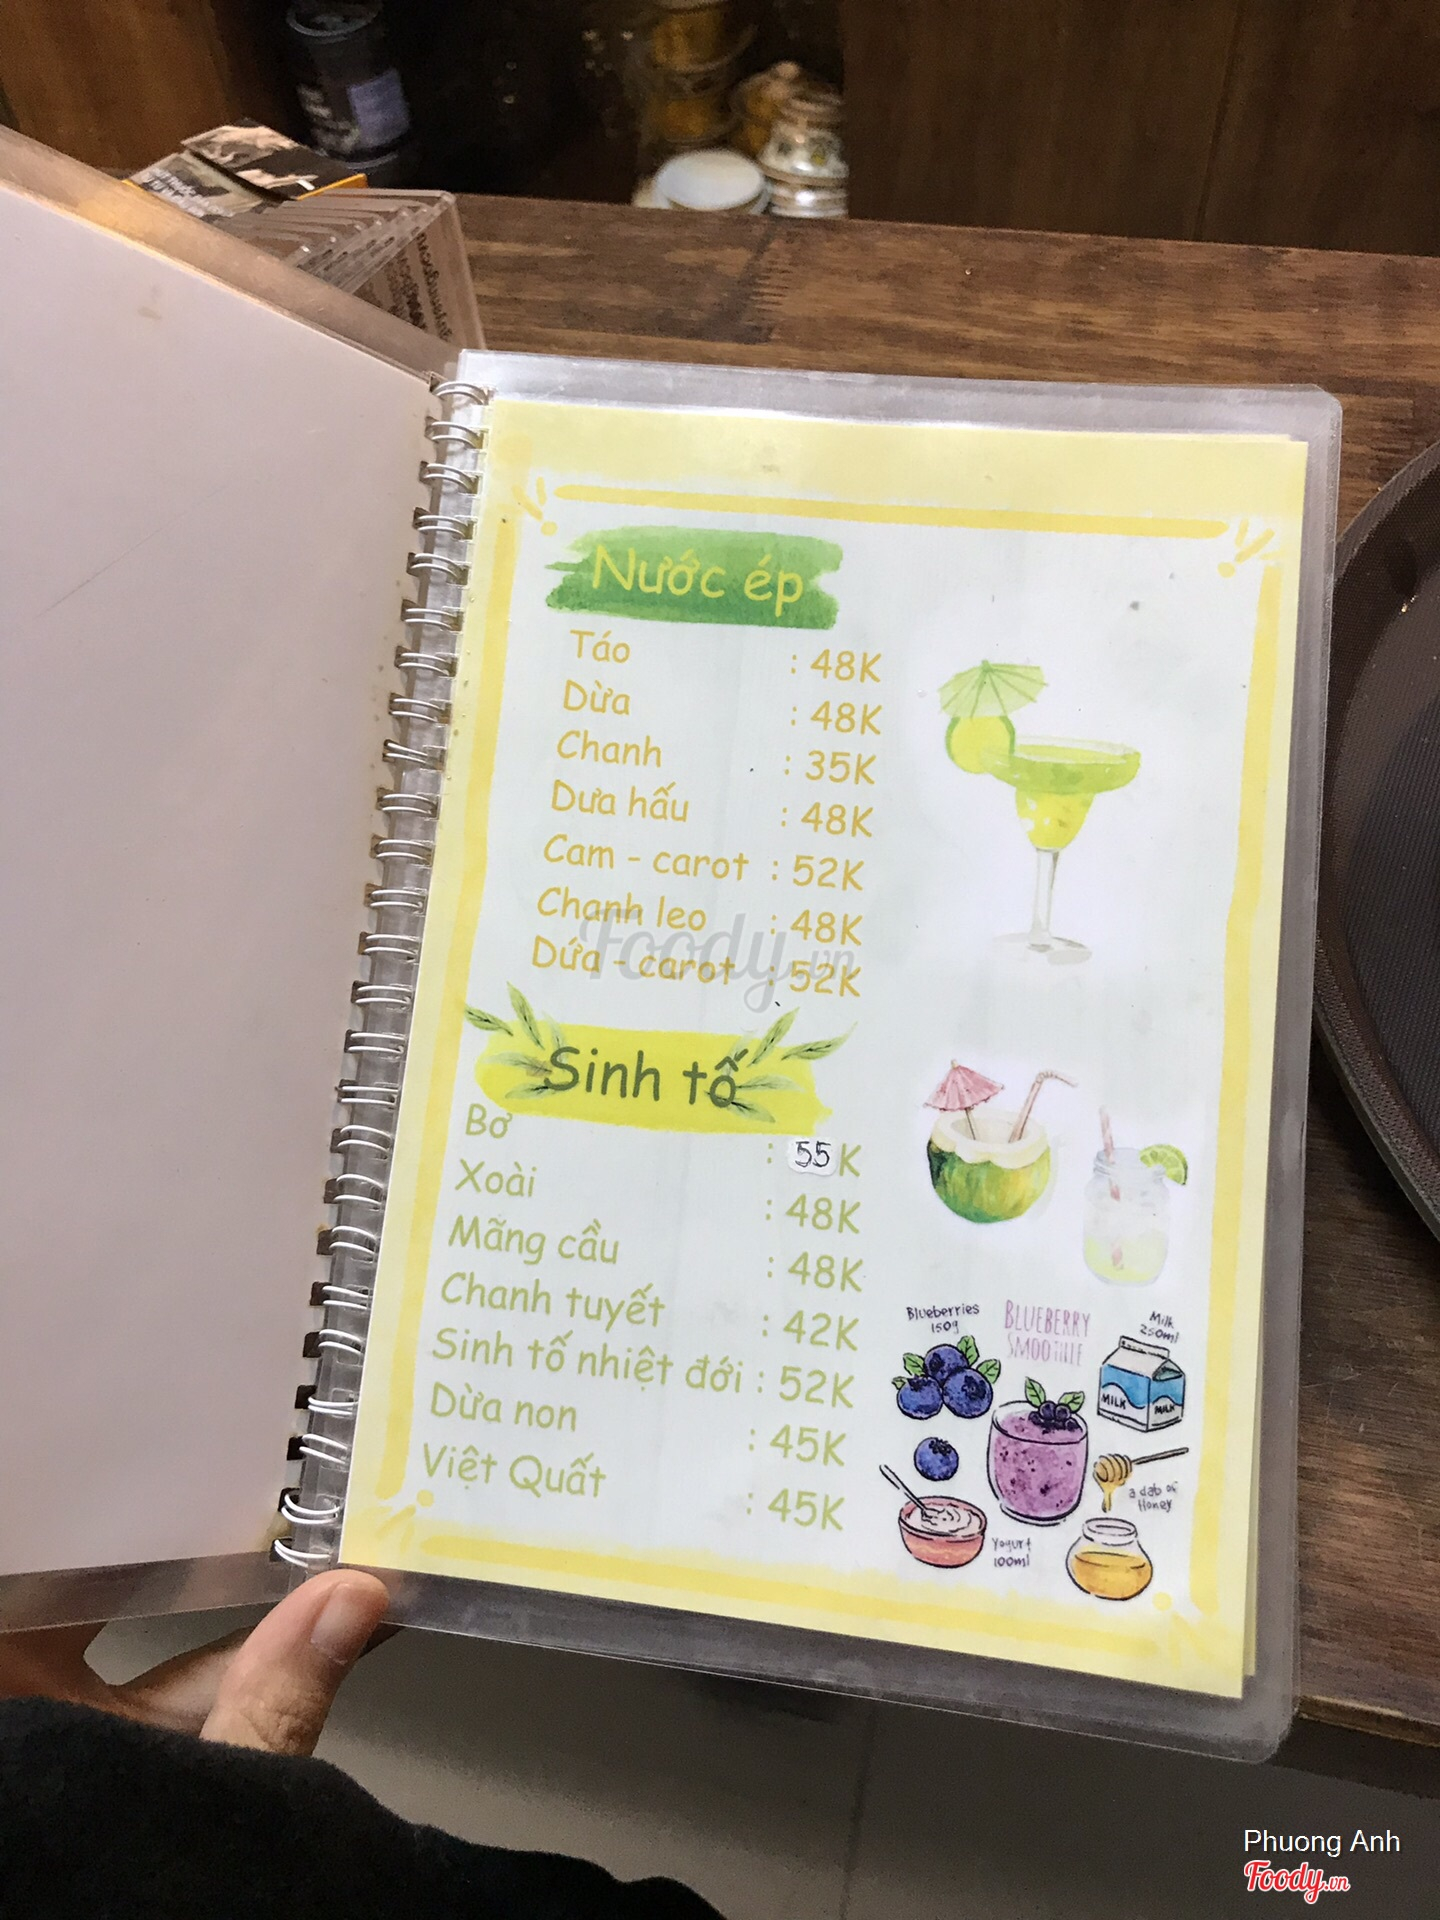 Nước ép
Táo : 48K
Dừa : 48K
Chanh : 35K
Dưa hấu : 48K
Cam - carot : 52K
Chanh leo : 48K
Dứa - carot : 52K
Foody.vn
Sinh tố
Bơ : 55K
Xoài : 48K
Mãng cầu : 48K
Chanh tuyết : 42K
Sinh tố nhiệt đới : 52K
Dừa non : 45K
Việt Quất : 45K
Blueberries
150g
BLUEBERRY
SMOOTHIE
Milk
250ml
MILK MILK
a dab of
Honey
Yogurt
100ml
Phuong Anh
Foody.vn